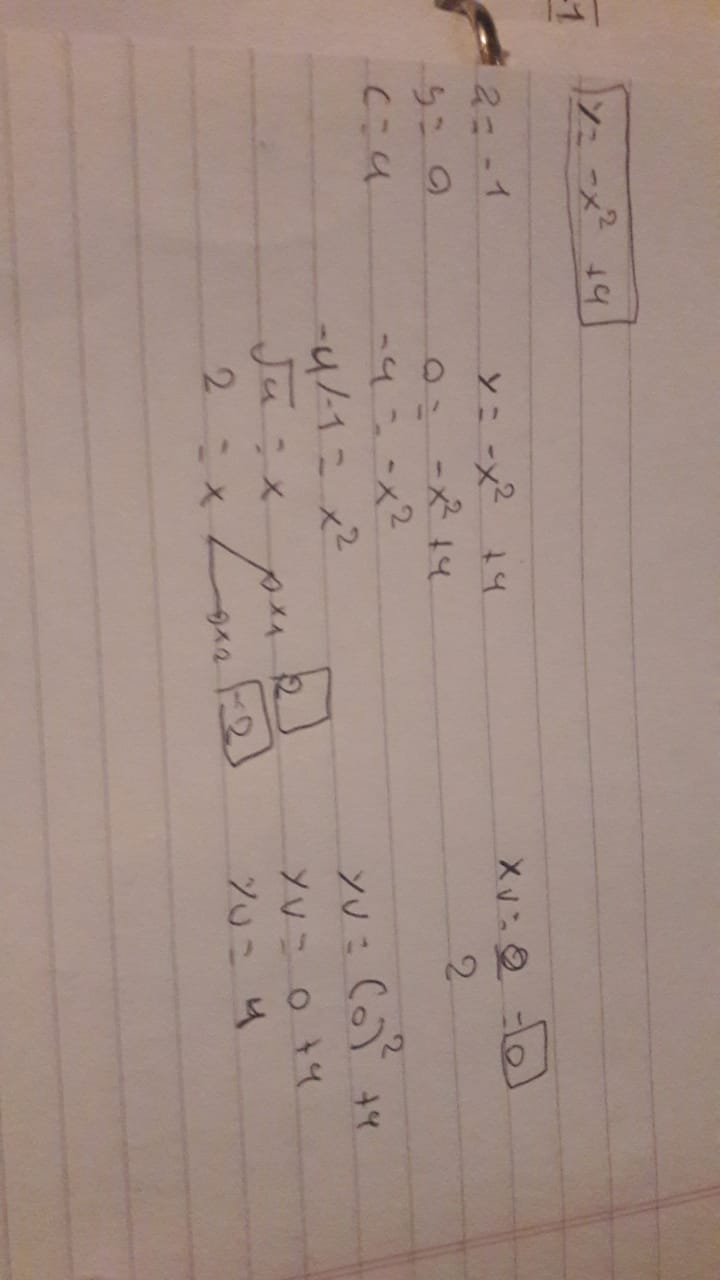 y= -x² +4
-1
a= -1
b= 0
c= 4
y= -x² +4
0= -x² +4
-4 = -x²
-4/-1 = x²
√4 = x x1 2
2 = x x2 -2
xv= 0/2 = 0
yv= (0)² +4
yv= 0 +4
yv= 4